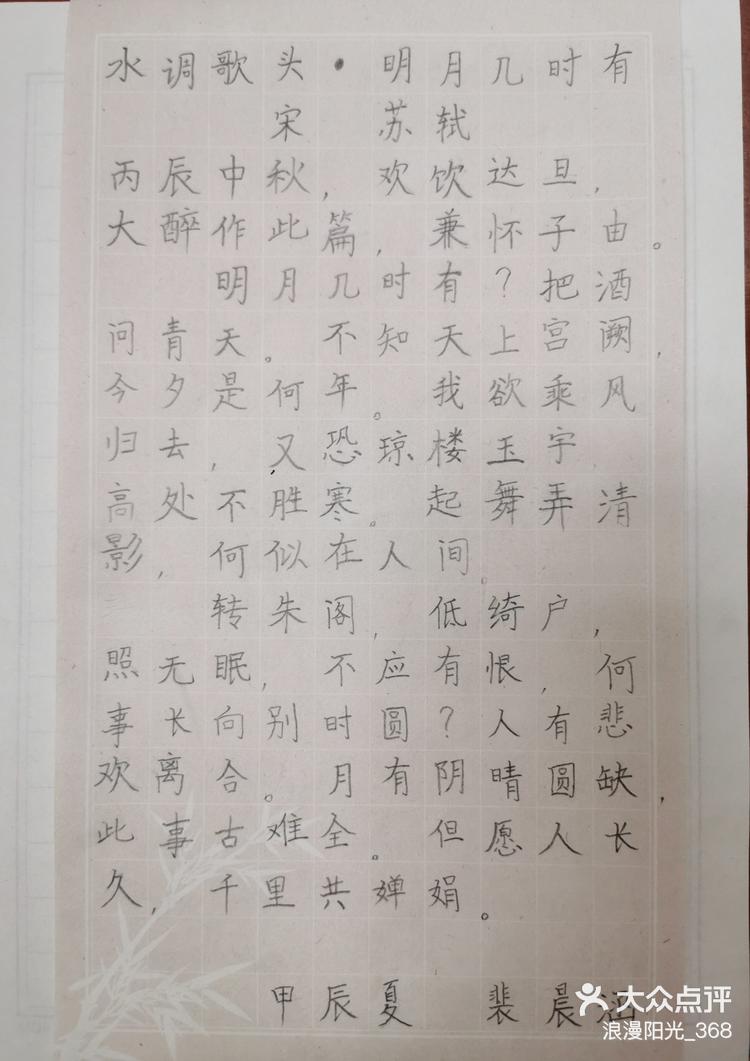 水调歌头·明月几时有
宋 苏轼
丙辰中秋，欢饮达旦，
大醉作此篇，兼怀子由。
明月几时有？把酒
问青天。不知天上宫阙，
今夕是何年。我欲乘风
归去，又恐琼楼玉宇，
高处不胜寒。起舞弄清
影，何似在人间。
转朱阁，低绮户，
照无眠，不应有恨，何
事长向别时圆？人有悲
欢离合。月有阴晴圆缺，
此事古难全。但愿人长
久，千里共婵娟。
甲辰夏 裴晨
大众点评
浪漫阳光_368